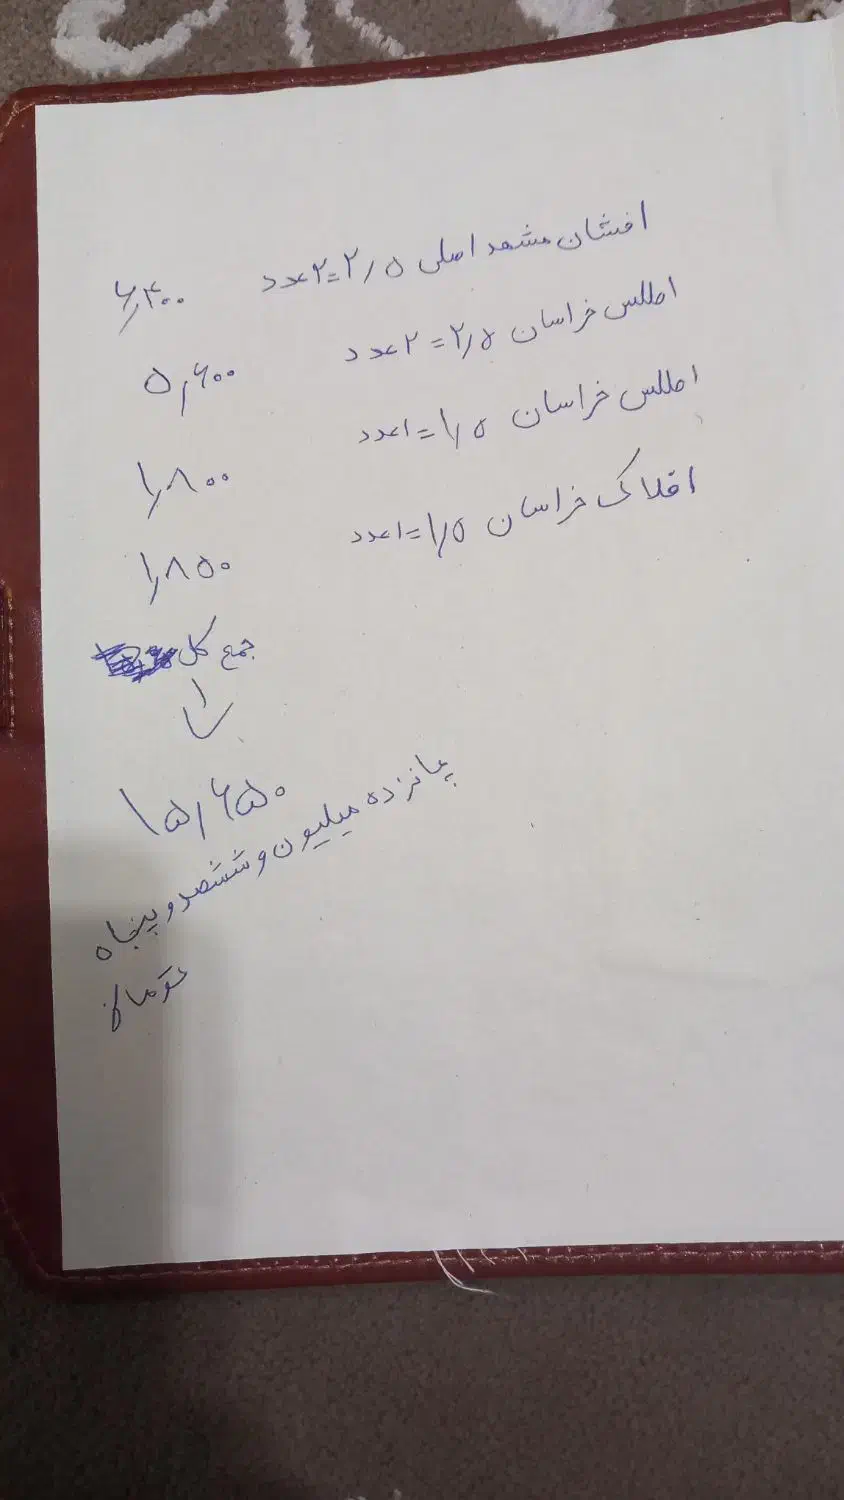 افشان مشهد اصلی ۲٫۵=۲عدد ۶٫۴۰۰
اطلس خراسان ۲٫۵=۲عدد ۵٫۶۰۰
اطلس خراسان ۱٫۵=۱عدد ۱٫۸۰۰
افلاک خراسان ۱٫۵=۱عدد ۱٫۸۵۰
جمع کل
۱۵٫۶۵۰
پانزده میلیون و ششصد و پنجاه
تومان